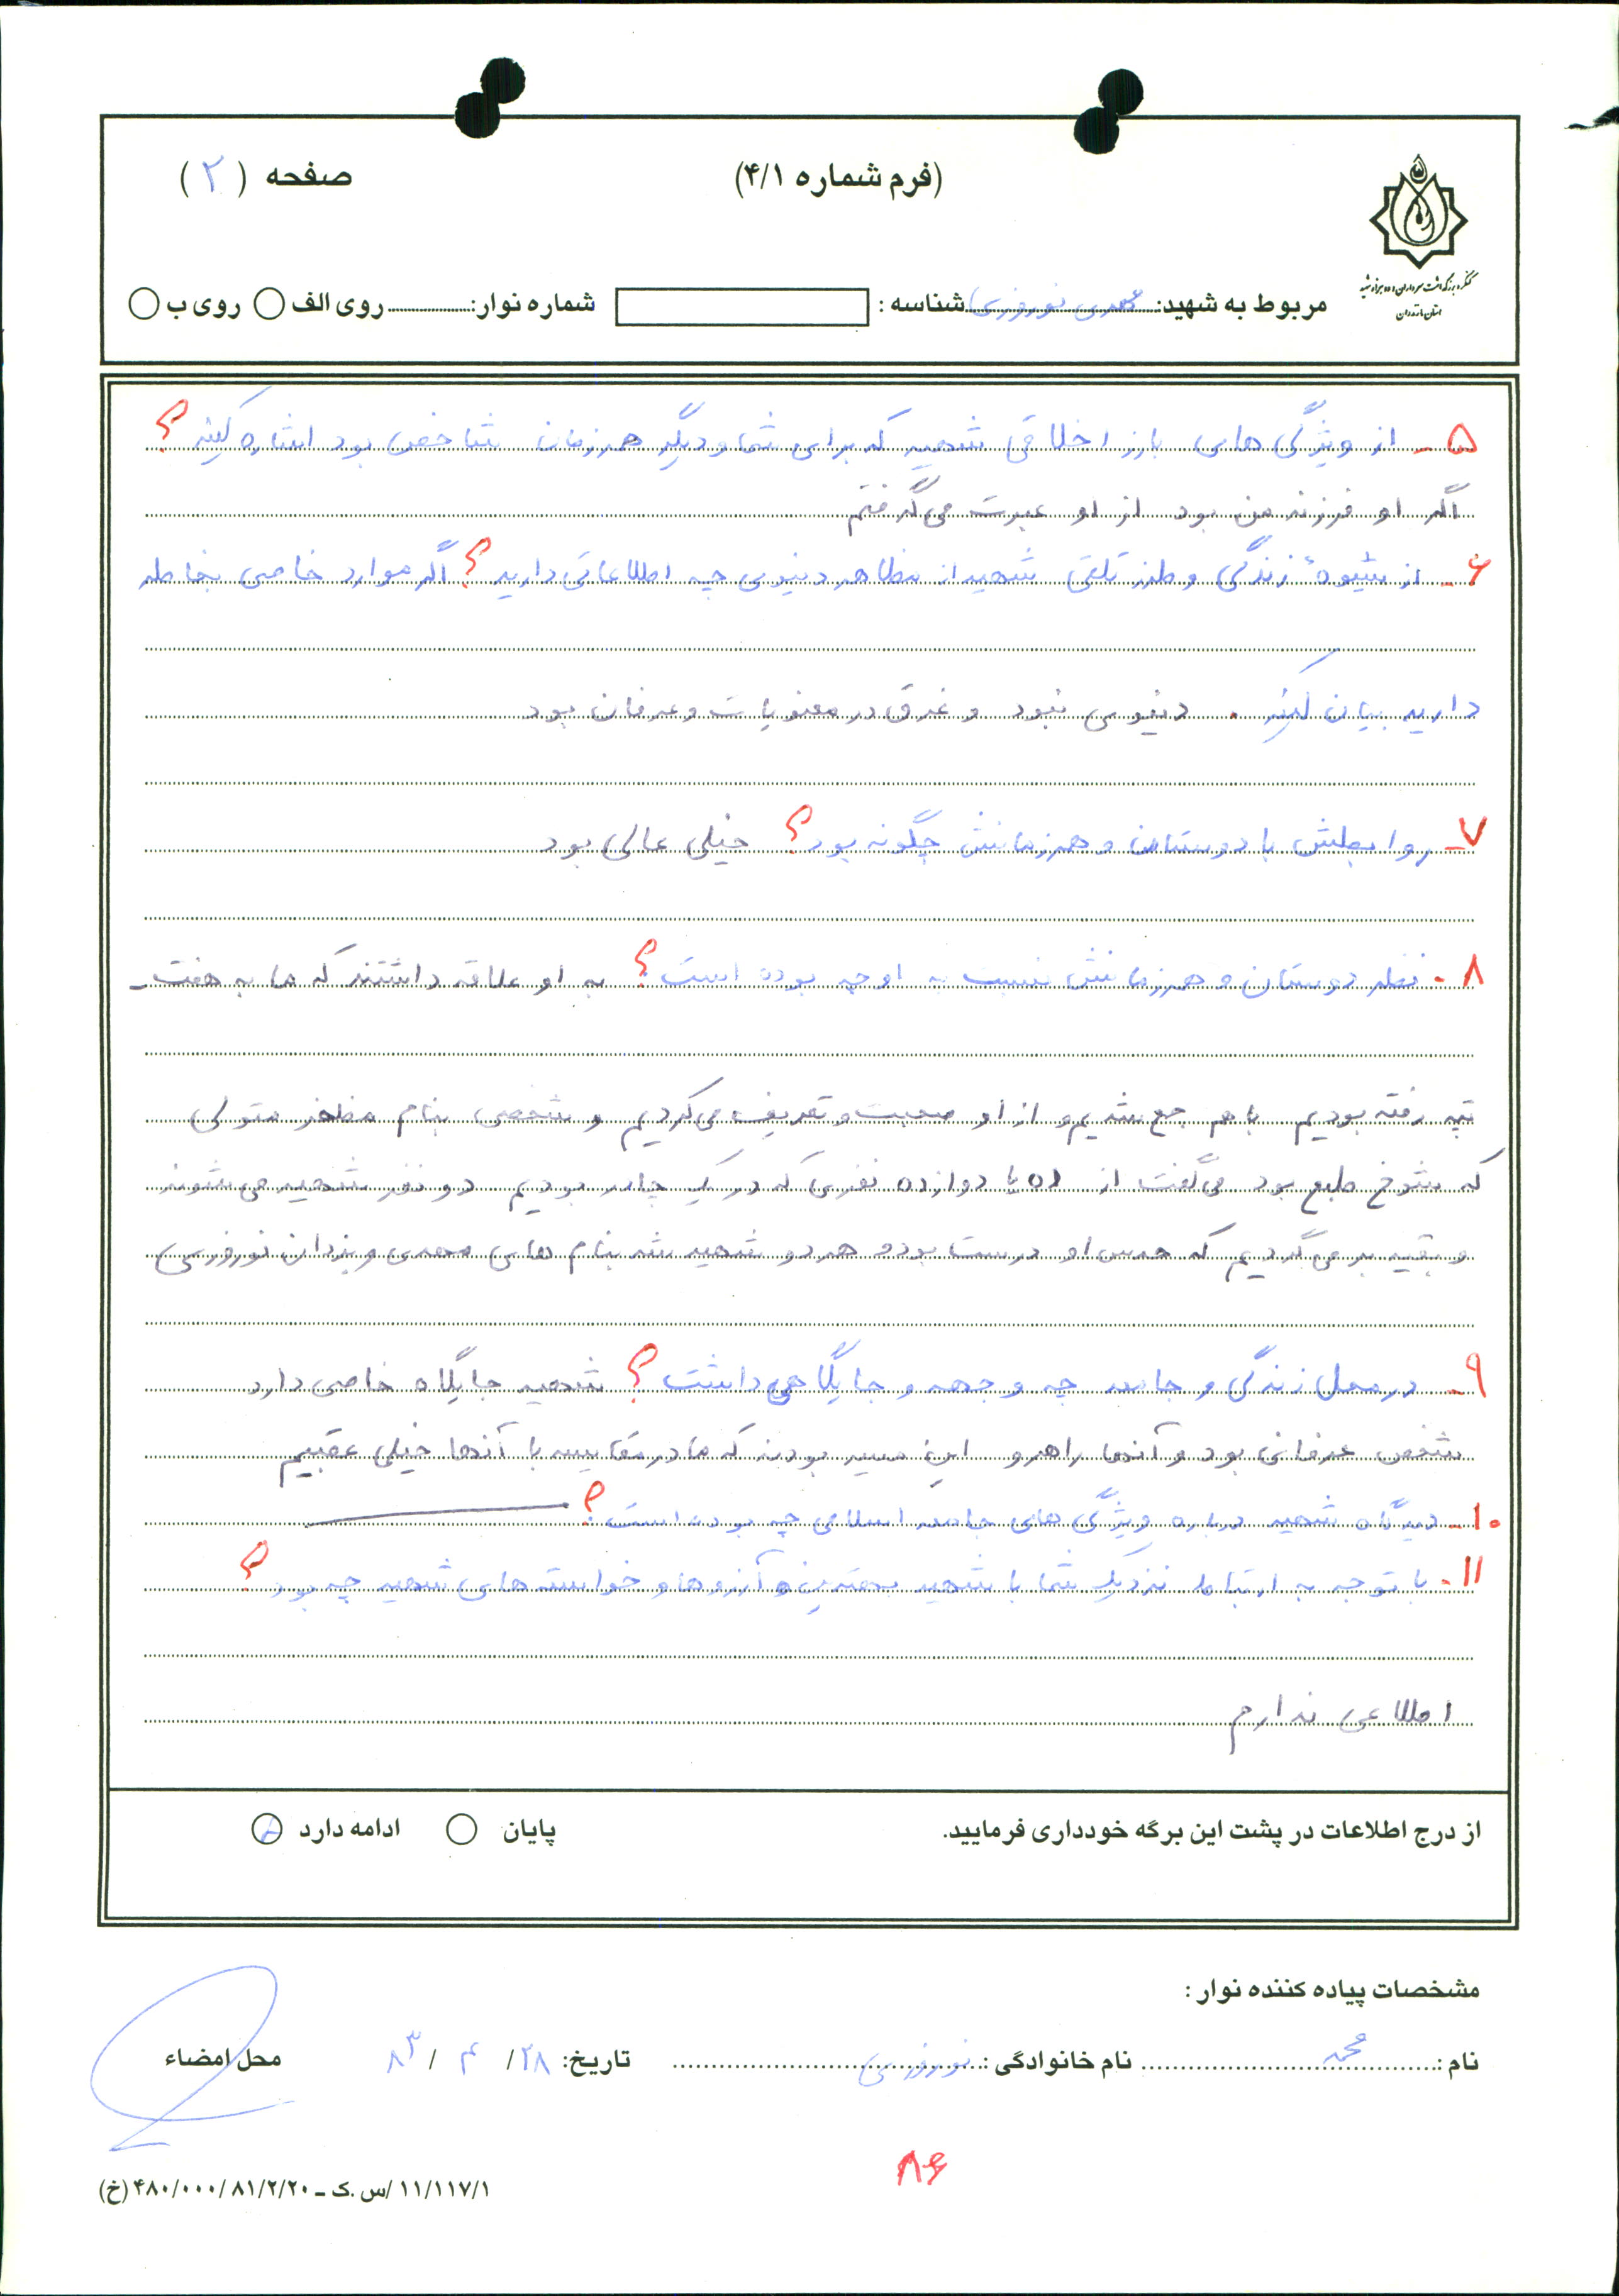 (فرم شماره ۴/۱)
صفحه (۲)
کنگره بزرگداشت سرداران و ده هزار شهید
استان مازندران
مربوط به شهید: مهدی نوروزی شناسه: شماره نوار: روی الف روی ب
۵- از ویژگی های بارز اخلاقی شهید که برای شما و دیگر همرزمان شاخص بود اشاره کنید؟
اگر او فرزند من بود از او عبرت می گرفتم
۶- از شیوهٔ زندگی و طرز تلقی شهید از مظاهر دنیوی چه اطلاعاتی دارید؟ اگر موارد خاصی بخاطر
دارید بیان کنید. دنیوی نبود و غرق در معنویات و عرفان بود
۷- روابطش با دوستان و همرزمانش چگونه بود؟ خیلی عالی بود
۸- نظر دوستان و همرزمانش نسبت به او چه بوده است؟ به او علاقه داشتند که ما به هفت-
تپه رفته بودیم باهم جمع شدیم و از او صحبت و تعریف می کردیم و شخصی بنام مظفر متولی
که شوخ طبع بود می گفت از ده یا دوازده نفری که در یک چادر بودیم دو نفر شهید می شوند
و بقیه بر می گردیم که حدس او درست بود و هر دو شهید شد بنام های مهدی و یزدان نوروزی
۹- در محل زندگی و جامعه چه وجهه و جایگاهی داشت؟ شهید جایگاه خاصی دارد
شخص عرفانی بود و آنها راهرو این مسیر بودند که ما در مقایسه با آنها خیلی عقبیم
۱۰- دیدگاه شهید درباره ویژگی های جامعه اسلامی چه بوده است؟
۱۱- با توجه به ارتباط نزدیک شما با شهید مهمترین آرزوها و خواسته های شهید چه بود؟
اطلاعی ندارم
از درج اطلاعات در پشت این برگه خودداری فرمایید.
پایان ادامه دارد
مشخصات پیاده کننده نوار:
نام: محمد نام خانوادگی: نوروزی تاریخ: ۲۸/ ۴ / ۸۳ محل امضاء
۸۶
۱۱/۱۱۷/۱ /س .ک ـ ۴۸۰/۰۰۰/۸۱/۲/۲۰ (خ)